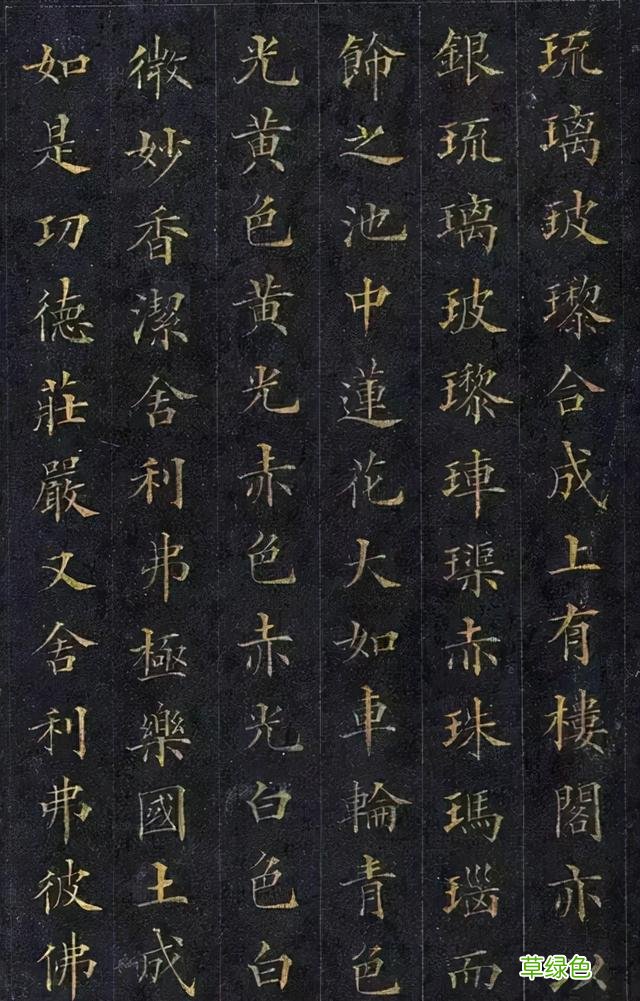 琉璃玻瓈合成上有樓閣亦以
銀琉璃玻瓈璖赤珠瑪瑙而
飾之池中蓮花大如車輪青色
光黄色黄光赤色赤光白色白
微妙香潔舍利弗極樂國土成
如是功德莊嚴又舍利弗彼佛
草绿色